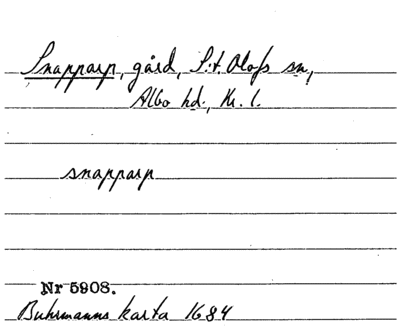 Snapparp, gård, S:t Olofs sn,
Albo hd., Kr. l.
snapparp
Nr 5908.
Buhrmanns karta 1684